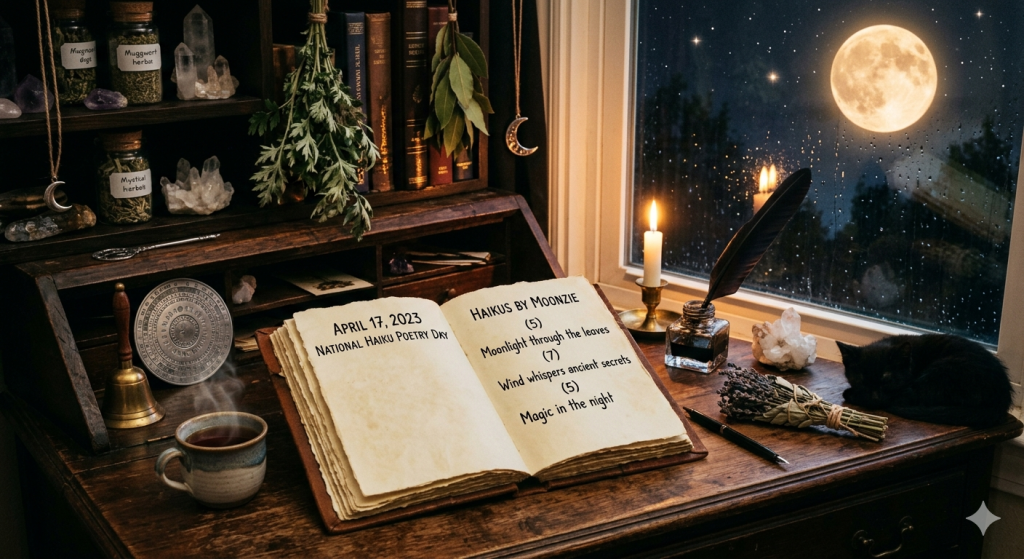 Muggwort
herba
Mystical
herbals
APRIL 17, 2023
NATIONAL HAIKU POETRY DAY
HAIKUS BY MOONZIE
(5)
Moonlight through the leaves
(7)
Wind whispers ancient secrets
(5)
Magic in the night